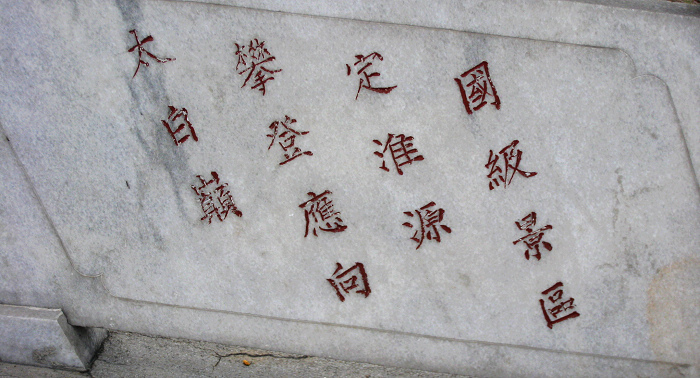 國級景區
定淮源
攀登應向
太白巔